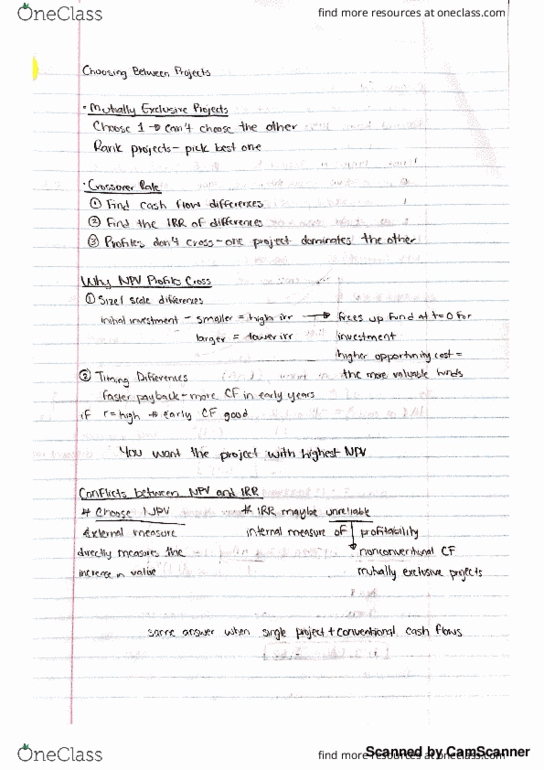 OneClass
find more resources at oneclass.com
Choosing Between Projects
• Mutually Exclusive Projects
Choose 1 → can't choose the other
Rank projects - pick best one
• Crossover Rate
① Find cash flows differences
② Find the IRR of differences
③ Profiles don't cross - one project dominates the other
Why NPV Profiles Cross
① Size/scale differences
initial investment - smaller = high irr → frees up fund at t=0 for
larger = lower irr investment
higher opportunity cost =
② Timing Differences the more valuable funds
faster payback - more CF in early years
if r=high → early CF good
You want the project with highest NPV
Conflicts between NPV and IRR
* Choose NPV * IRR maybe unreliable
external measure internal measure of profitability
directly measures the nonconventional CF
increase in value mutually exclusive projects
same answer when single project + conventional cash flows
OneClass
find more resources at oneclass.com
Scanned by CamScanner